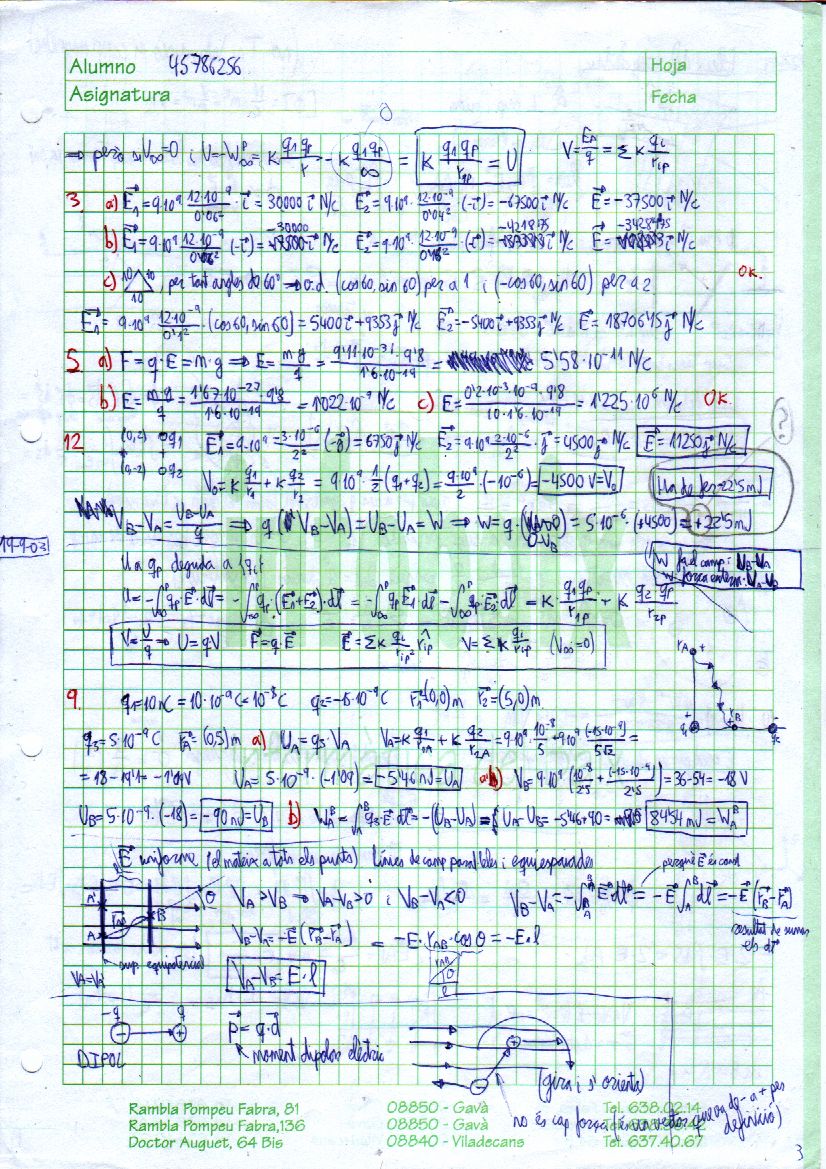 Alumno 45786256 Hoja
Asignatura Fecha
⇒ però si V∞=0 i U=-W∞^P = K q1 qp/r - K q1 qp/∞ = K q1 qp/r1p = U V=EA/q = Σ K qi/rip
0
3. a) E1=9·10^9 12·10^-9/0'06² · i = 30000 i N/C E2=9·10^9 12·10^-9/0'04² (-i) = -67500 i N/C E=-37500 i N/C
b) E1=9·10^9 (-i) = -30000 i N/C E2=9·10^9 12·10^-9 (-i) = -4218'75 i N/C E=
c) 10 10 10, per tant angles de 60º ⇒ (cos 60, sin 60) per a 1 i (-cos 60, sin 60) per a 2 OK.
E1= 9·10^9 12·10^-9/0'1² · (cos 60, sin 60) = 5400 i + 9353 j N/C E2=-5400 i + 9353 j N/C E= 18706'15 j N/C
5. a) F=q·E=m·g ⇒ E= m·g/q = 9'11·10^-31·9'8/1'6·10^-19 = 5'58·10^-11 N/C
b) E= m·g/q = 1'67·10^-27·9'8/1'6·10^-19 = 1'022·10^-9 N/C c) E= 0'2·10^-3·10^-9·9'8/10·1'6·10^-19 = 1'225·10^6 N/C OK.
12 (0,2) q1 E1=9·10^9 = 3·10^-6/2² (-j) = 6750 j N/C E2=9·10^9 2·10^-6/2² · j = 4500 j N/C E=11250 j N/C ?
(0,-2) q2 V0=K q1/r1 + K q2/r2 = 9·10^9 · 1/2 (q1+q2) = 9·10^9/2 (-10^-6) = -4500 V=V0 Ha de fer -22'5 mJ
VB-VA= UB-UA/q ⇒ q(VB-VA)=UB-UA=W ⇒ W=q·(0-VB) = 5·10^-6·(+4500) = +22'5 mJ
19-9-03
W fa el camp: UB-UA
W força externa: UA-UB
U a qp deguda a 1 qi:
U=-∫∞^P qp·E·dl = -∫∞^P qp·(E1+E2)·dl = -∫∞^P qp E1·dl - ∫∞^P qp·E2·dl = K· q1·qp/r1p + K q2·qp/r2p
V= U/q ⇒ U=qV F=q·E E=ΣK qi/rip² rip V=ΣK qi/rip (V∞=0)
9. q1=10 nC = 10·10^-9 C = 10^-8 C q2=-15·10^-9 C r1=(0,0) m r2=(5,0) m
q3=5·10^-9 C rA=(0,5) m a) UA=q3·VA VA=K q1/r1A + K q2/r2A = 9·10^9 · 10^-8/5 + 9·10^9 (-15·10^-9)/5√2 =
=18-19'1=-1'09 V UA=5·10^-9·(-1'09) = -5'46 nJ=UA VB=9·10^9 (10^-8/2'5 + (-15·10^-9)/2'5) = 36-54=-18 V
UB=5·10^-9·(-18) = -90 nJ=UB b) WA^B = ∫A^B q3·E·dl = -(UB-UA) = UA-UB = -5'46+90 = 84'54 nJ = WA^B
E uniforme (el mateix a tots els punts) línies de camp paral·leles i equiespaiades perquè E és const
VA>VB ⇒ VA-VB>0 i VB-VA<0 VB-VA=-∫A^B E·dl = -E∫A^B dl = -E(rB-rA)
VB-VA=-E(rB-rA) = -E·rAB·cos θ = -E·l resultat de sumar els dl
sup. equipotencial
VA=VA' VA-VB=E·l
-q q
DIPOL p=q·d
moment dipolar elèctric
(gira i s'orienta)
no és cap força (és un vector que va de - a + per definició)
Rambla Pompeu Fabra, 81 08850 - Gavà Tel. 638.02.14
Rambla Pompeu Fabra,136 08850 - Gavà
Doctor Auguet, 64 Bis 08840 - Viladecans Tel. 637.40.67
3